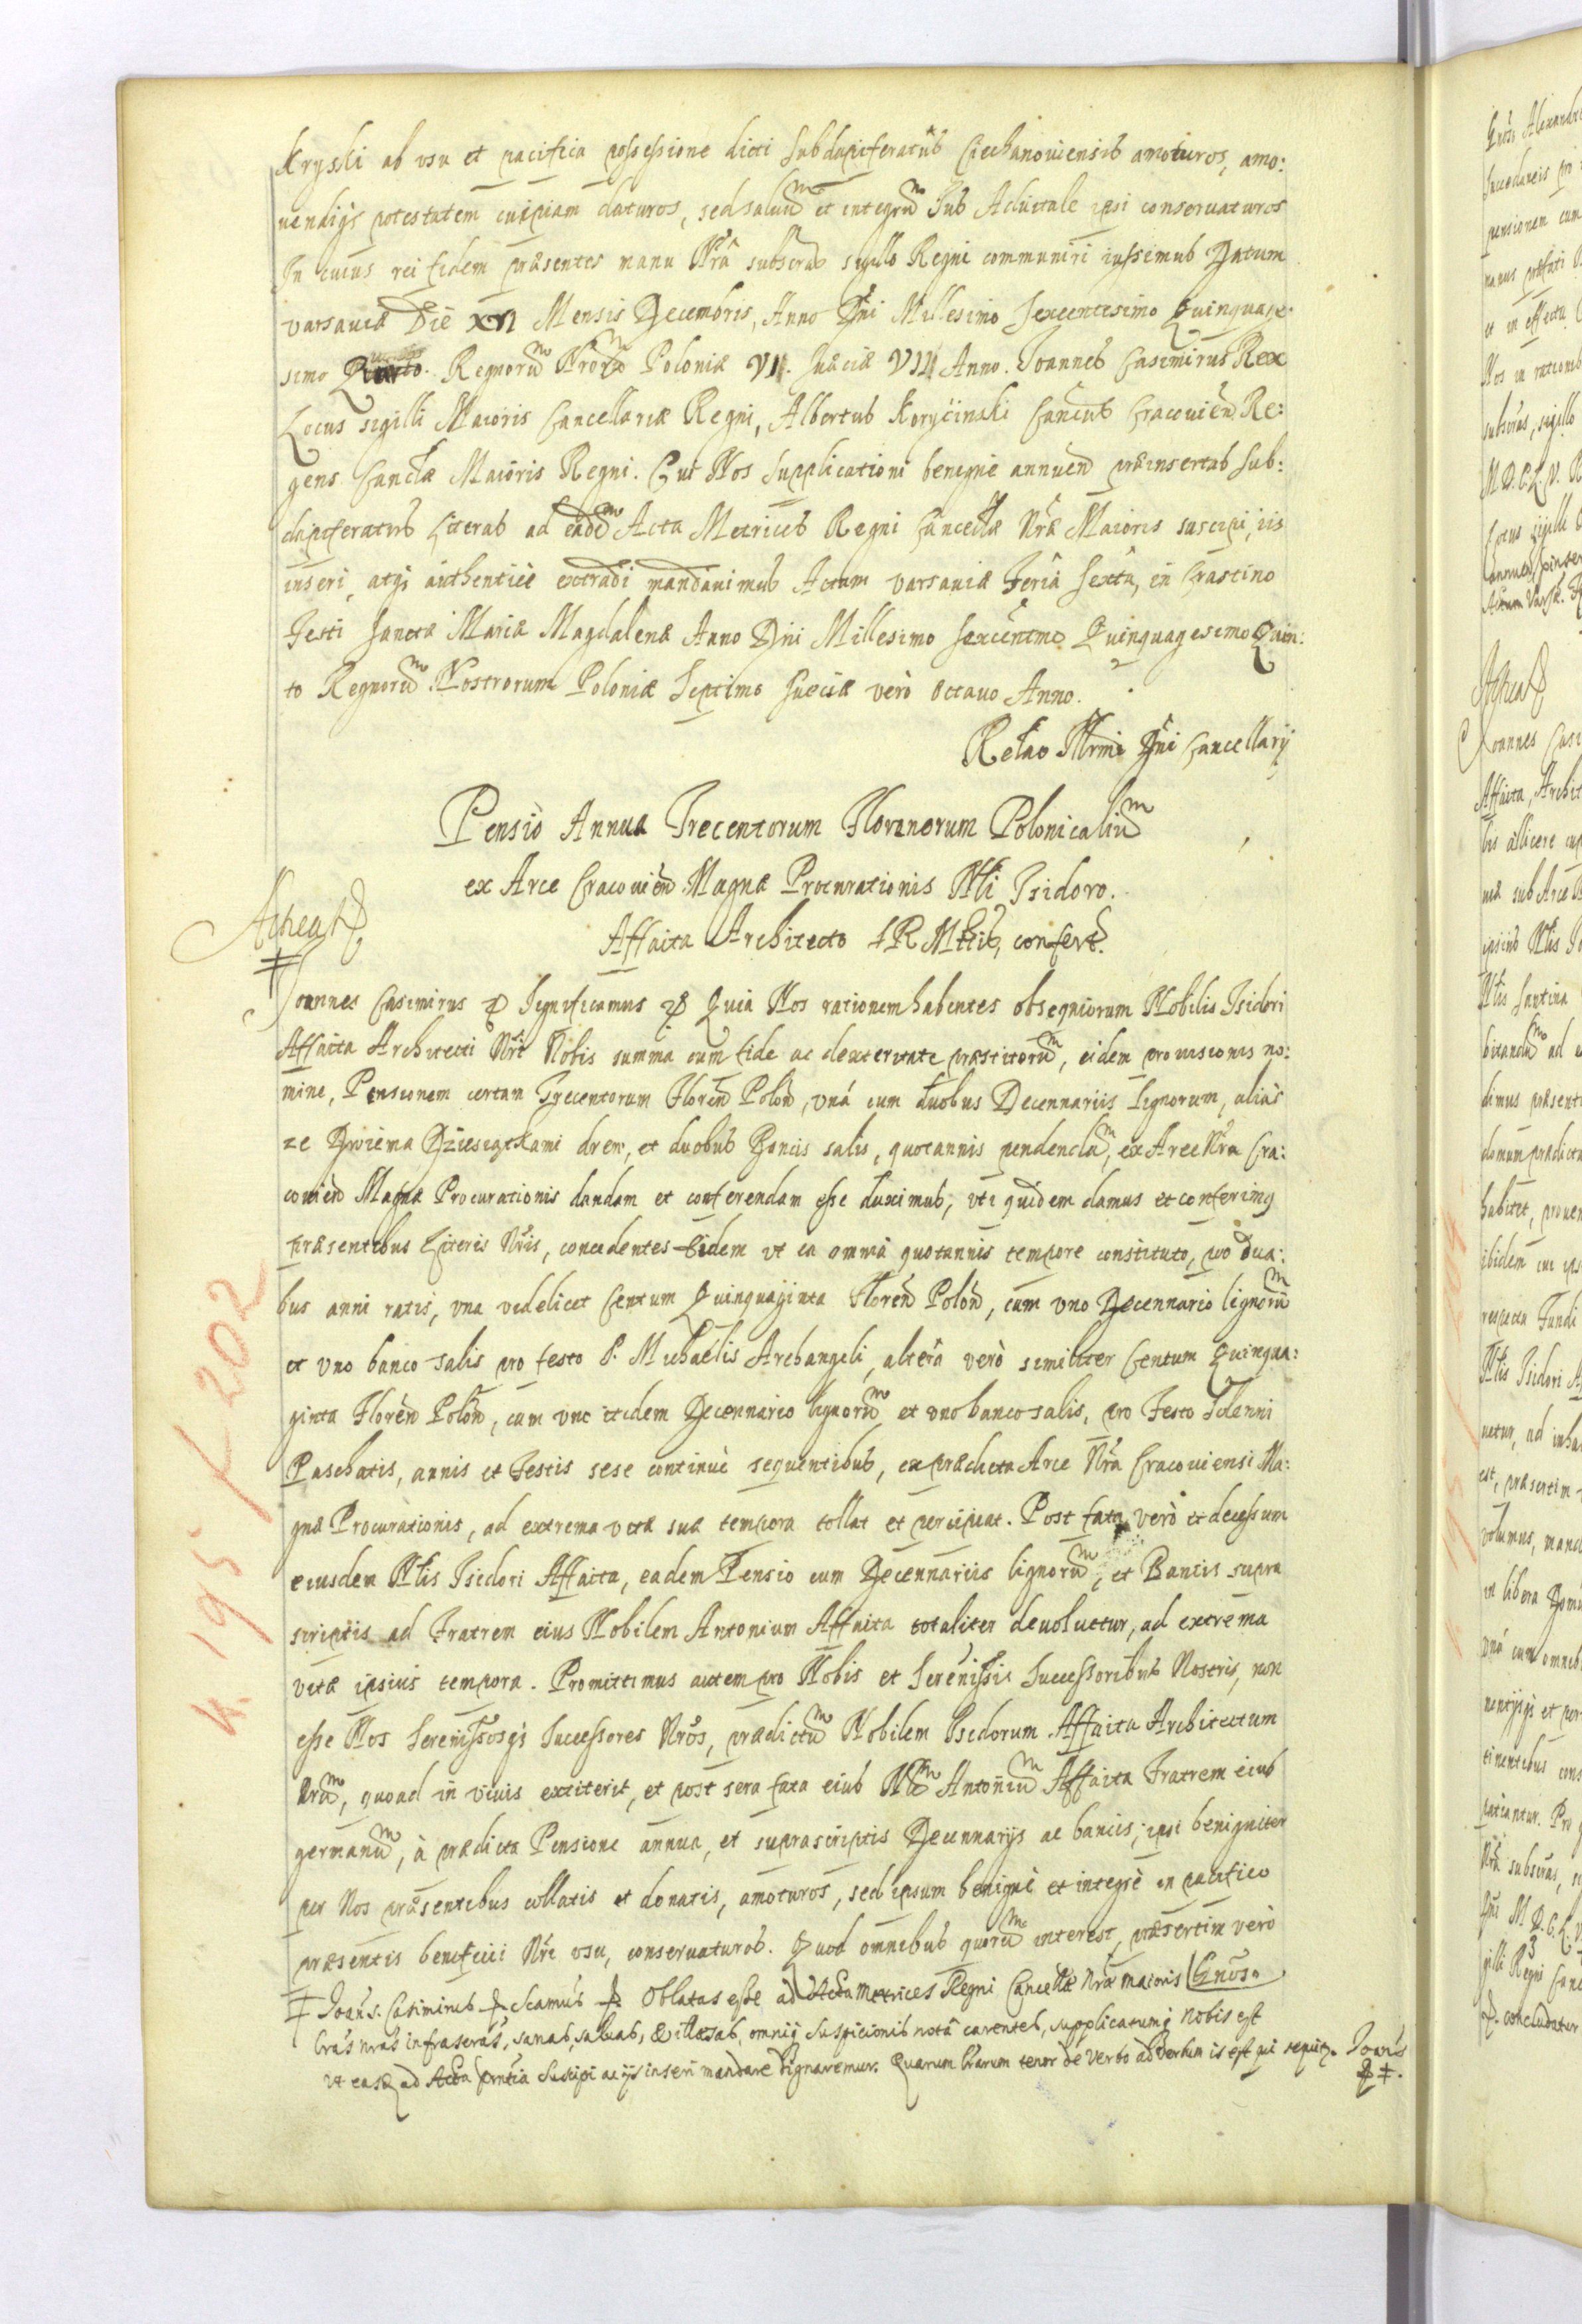 Kryski ab usu et pacifica possessione dicti Subdapiferatus Ciechanoviensis amoturos, amo:
uendiqs potestatem cuipiam daturos, sed saluum et integrum Jus Aduitale ipsi conseruaturos
In cuius rei fidem præsentes manu Nrâ subscras sigillo Regni communiri iussimus Datum
varsauiæ Die XVI Mensis Decembris, Anno Dni Millesimo Sexcentesimo Quinquage:
simo Quarto. Regnorum Nrorum Poloniæ VI. Sueciæ VII Anno. Joannes Casimirus Rex
Locus sigilli Maioris Cancellariæ Regni, Albertus Koryciński Cancus Cracouien Re:
gens Canctæ Maioris Regni. Cui Nos Supplicationi benigne annuen præinsertas Sub:
dapiferatus Literas ad eadem Acta Metrices Regni Cancellæ Nræ Maioris suscipi, iis
inseri, atqs authentice extradi mandauimus Actum varsauiæ Feria Sexta, in Crastino
Festi Sanctæ Mariæ Magdalenæ Anno Dni Millesimo Sexcentmo Quinquagesimo Quin:
to Regnorum Nostrorum Poloniæ Septimo Sueciæ verò octauo Anno.
Relao Illrmi Dni Cancellarij
Pensio Annua Trecentorum Florenorum Polonicalium
ex Arce Cracouien Magnæ Procurationis Nli Isidoro
Affaita Architecto SRMttis, confert.
Joannes Casimirus & Significamus & Quia Nos rationem habentes obsequiorum Nobilis Isidori
Affaita Architecti Nri Nobis summa cum fide ac dexteritate præstitorum, eidem prouisionis no:
mine, Pensionem certam Trecentorum Floren Polon, vná cum duobus Decennariis lignorum, aliàs
ze Dwiema Dziesiątkami drew, et duobus Bancis salis, quotannis pendendam, ex Arce Nra Cra:
couien Magnæ Procurationis dandam et conferendam esse duximus, vti quidem damus et conferimq
præsentibus Literis Nris, concedentes Eidem vt ea omnia quotannis tempore constituto, pro dua:
bus anni ratis, vna videlicet Centum Quinquaginta Floren Polon, cum vno Decennario lignorum
et vno banco salis pro festo S. Michaëlis Archangeli, alterâ verò similiter Centum Quinqua:
ginta Floren Polon, cum vno itidem Decennario lignorum et vno banco salis, pro Festo Solenni
Paschatis, annis et Festis sese continuè sequentibus, ex prædicta Arce Nra Cracouiensi Ma:
gnæ Procurationis, ad extrema vitæ suæ tempora tollat et percipiat. Post fata verò et decessum
eiusdem Nlis Isidori Affaita, eadem Pensio cum Decennariis lignorum, et Bancis supra
scriptis ad Fratrem eius Nobilem Antonium Affaita totaliter deuoluetur, ad extrema
vitæ ipsius tempora. Promittimus autem pro Nobis et Serenissis Successoribus Nostris, non
esse Nos Serenissosqs Successores Nros, prædictum Nobilem Isidorum Affaita Architectum
Nrum, quoad in viuis extiterit, et post sera fata eius Nlem Antonium Affaita Fratrem eius
germanum, à prædicta Pensione annua, et suprascriptis Decennarijs ac bancis, ipsi benigniter
per Nos præsentibus collatis et donatis, amoturos, sed ipsum benignè et integrè in pacifico
præsentis beneficii Nri vsu, conseruaturos. Quod omnibus quorum interest, præsertim verò
‡ Joans. Casimirus & Scamus & Oblatas esse ad Acta Metrices Regni Cancellæ Nræ maioris
Lras nras infrascras, sanas, saluas, & illæsas, omniq suspicionis notâ carentes, supplicatumq nobis est
vt easq ad Acta pntia suscipi ac ijs inseri mandare dignaremur. Quarum Lrarum tenor de verbo ad verbum is est qui sequitr. Joans
& ‡.
k. 195 / 202